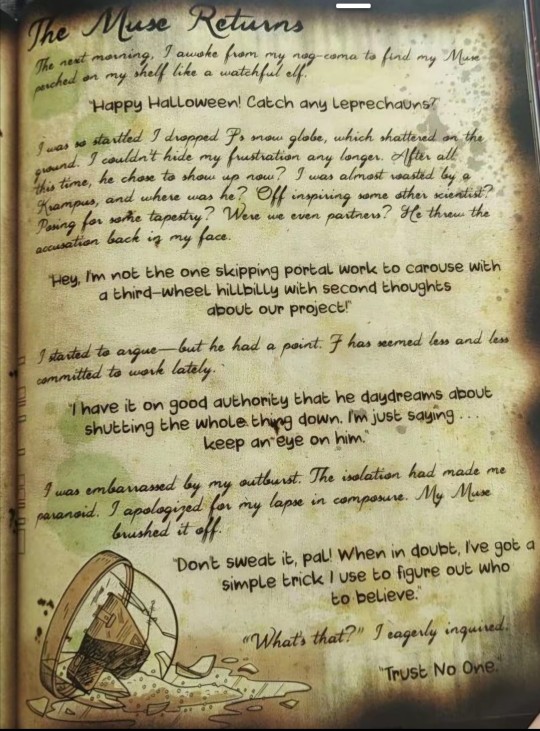 The Muse Returns
The next morning, I awoke from my nog-coma to find my Muse
perched on my shelf like a watchful elf.
"Happy Halloween! Catch any leprechauns?"
I was so startled I dropped F's snow globe, which shattered on the
ground. I couldn't hide my frustration any longer. After all
this time, he chose to show up now? I was almost roasted by a
Krampus, and where was he? Off inspiring some other scientist?
Posing for some tapestry? Were we even partners? He threw the
accusation back in my face.
"Hey, I'm not the one skipping portal work to carouse with
a third-wheel hillbilly with second thoughts
about our project!"
I started to argue—but he had a point. F has seemed less and less
committed to work lately.
"I have it on good authority that he daydreams about
shutting the whole thing down. I'm just saying...
keep an eye on him."
I was embarrassed by my outburst. The isolation had made me
paranoid. I apologized for my lapse in composure. My Muse
brushed it off.
"Don't sweat it, pal! When in doubt, I've got a
simple trick I use to figure out who
to believe."
"What's that?" I eagerly inquired.
"Trust No One."